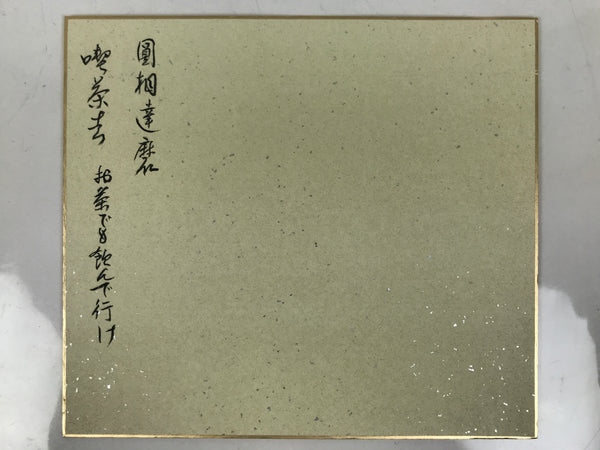 圓相達磨
喫茶去 お茶でも飲んで行け